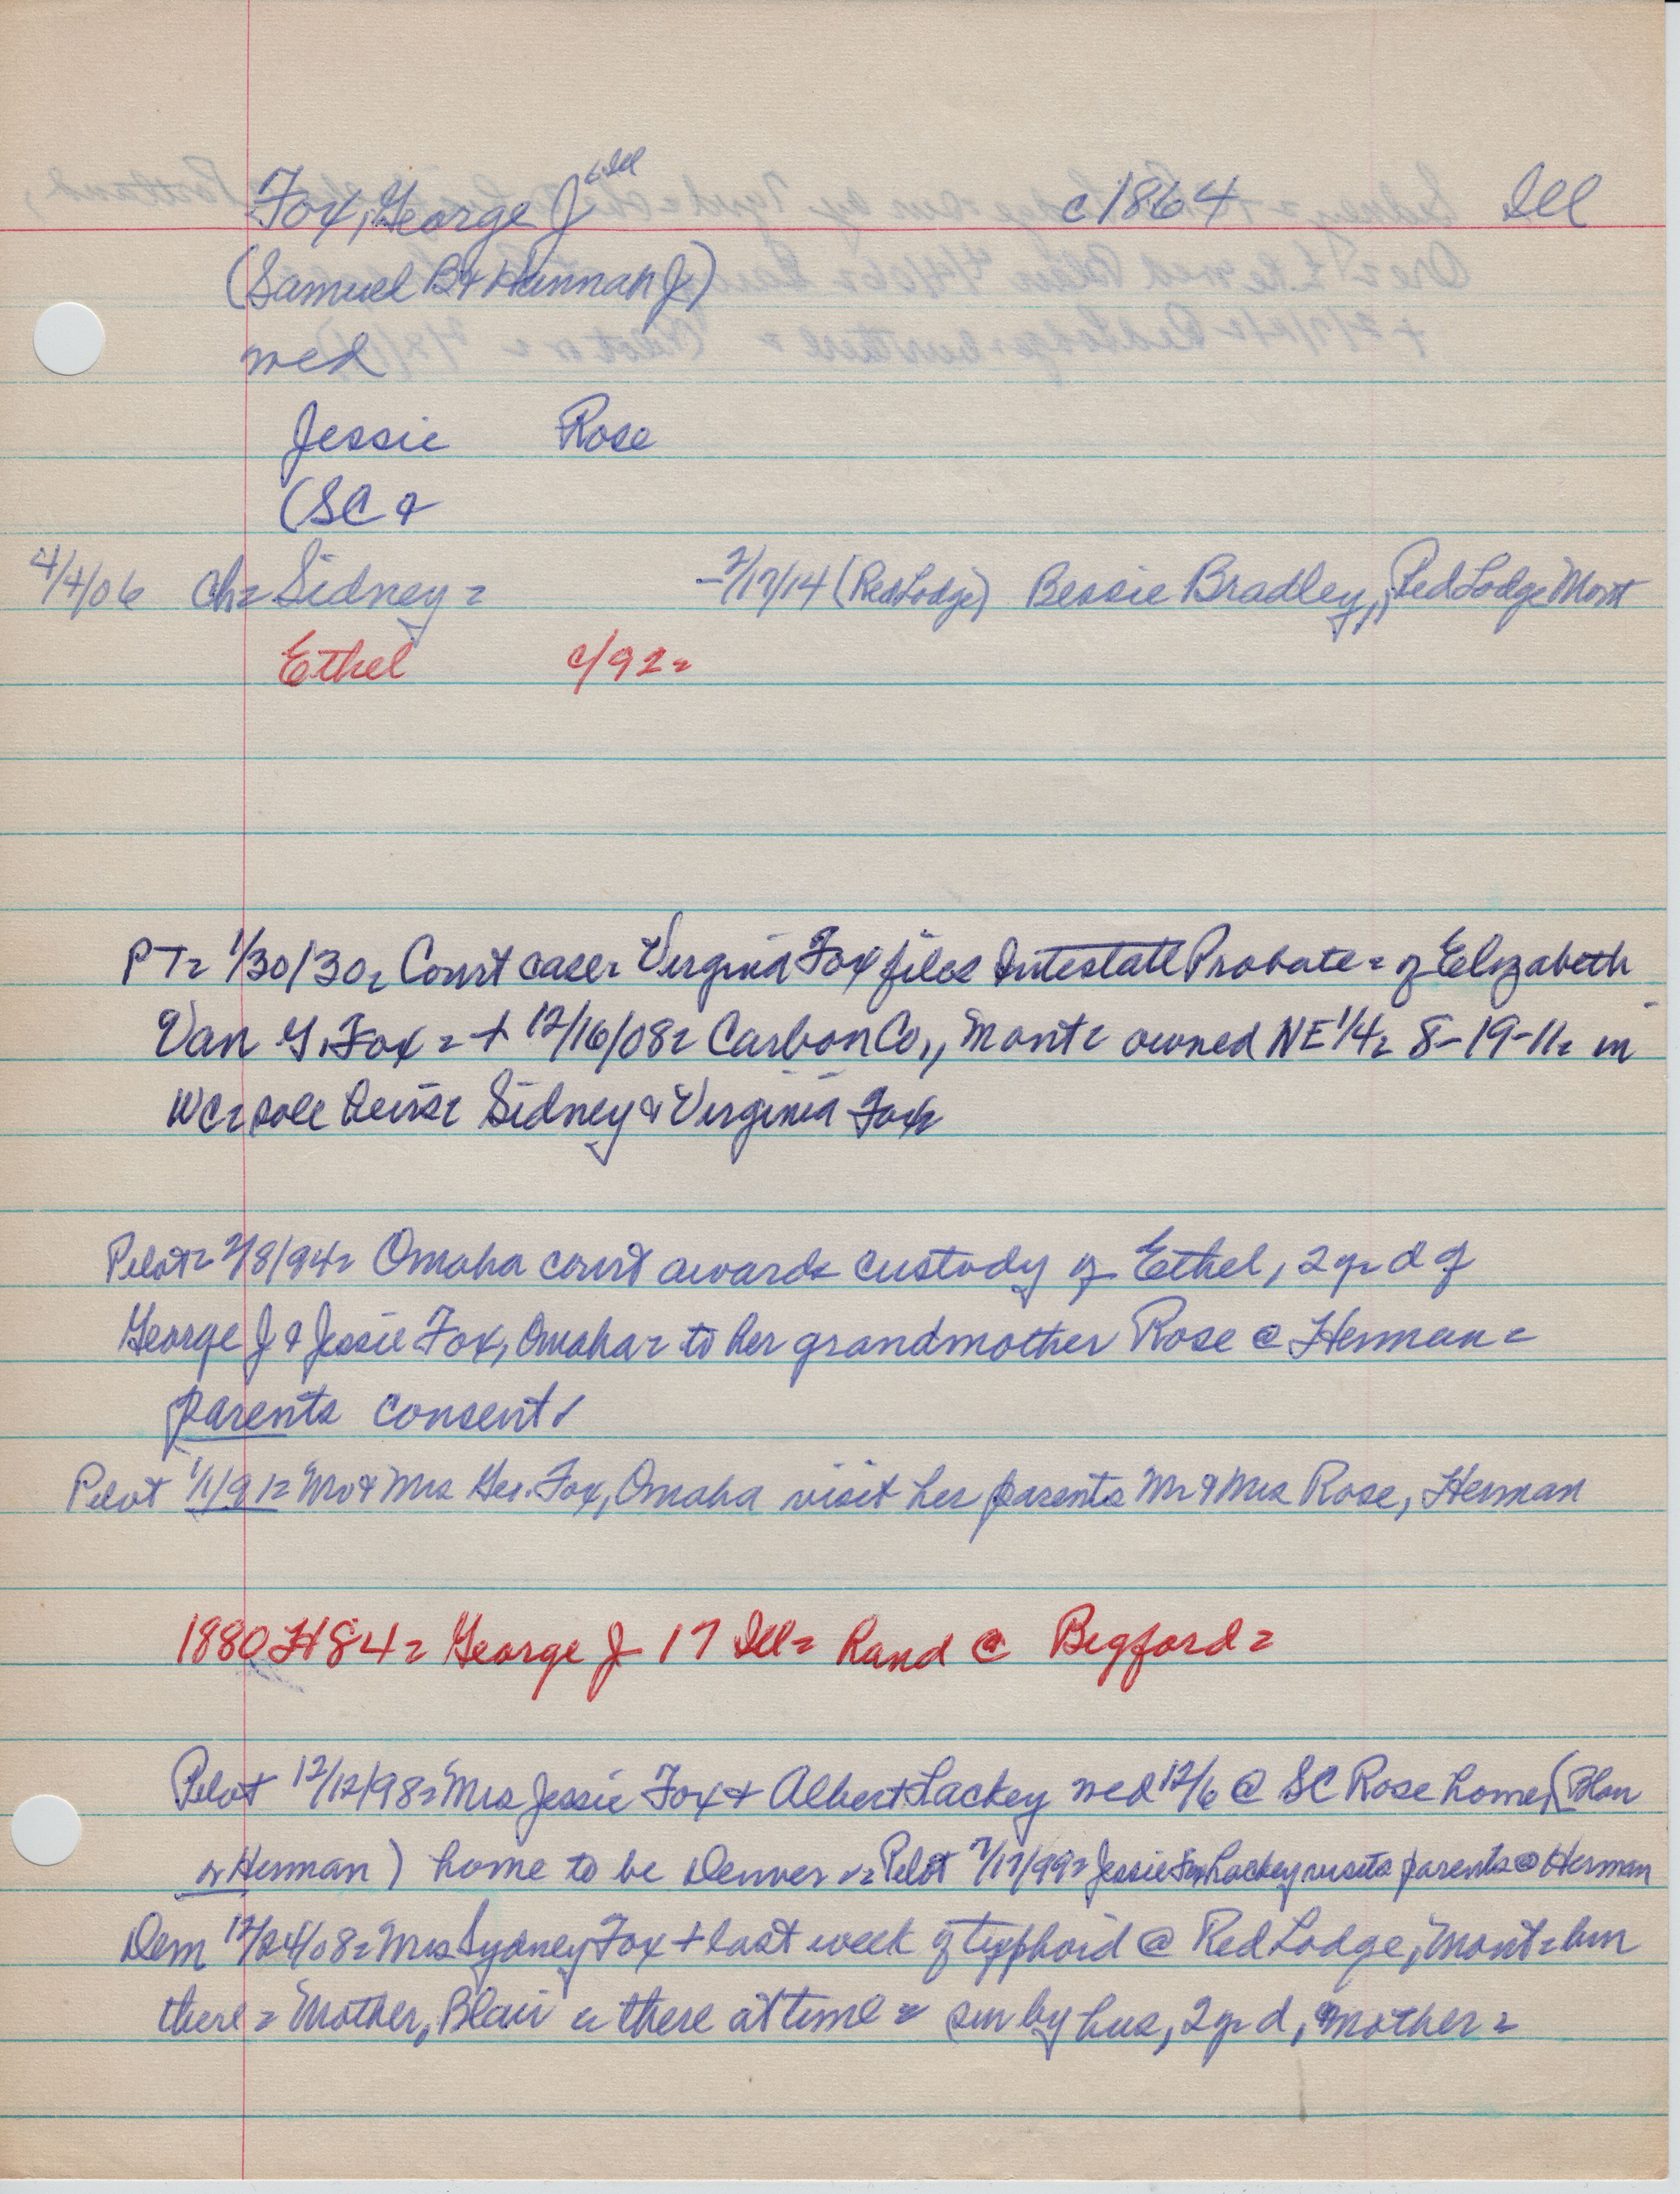 Fox, George J c Ill c1864 Ill
(Samuel B & Hannah J)
wed
Jessie Rose
(SC &
4/4/06 ch= Sidney = -2/17/14 (Red Lodge) Bessie Bradley, Red Lodge Mont
Ethel c/92=
PT= 1/30/30= Court case= Virginia Fox files Intestate Probate = of Elizabeth
Van G. Fox = + 12/16/08= Carbon Co., Mont= owned NE 1/4= 8-19-11= in
WC= sole heirs= Sidney & Virginia Fox
Pilot= 2/8/94= Omaha court awards custody of Ethel, 2 yr d of
George J & Jessie Fox, Omaha = to her grandmother Rose @ Herman =
parents consent
Pilot 1/1/91= Mr & Mrs Geo. Fox, Omaha visit her parents Mr & Mrs Rose, Herman
1880 H84= George J 17 Ill= hand @ Bigford=
Pilot 12/12/98= Mrs Jessie Fox + Albert Lackey wed 12/6 @ SC Rose home, (Blair
or Herman) home to be Denver = Pilot 7/17/99= Jessie Fox Lackey visits parents @ Herman
Dem 12/24/08= Mrs Sydney Fox + last week of typhoid @ Red Lodge, Mont = bur
there = Mother, Blair is there at time = sur by hus, 2 yr d, mother =